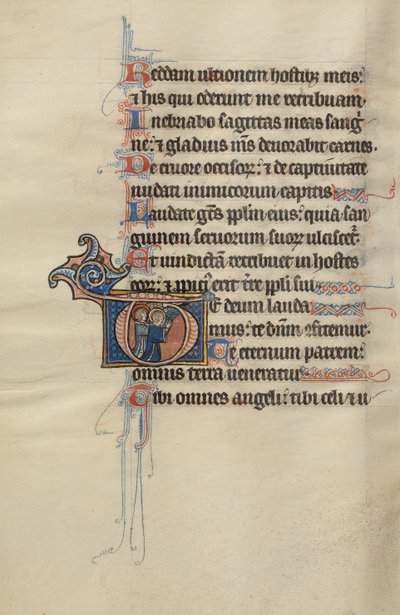 Reddam ultionem hostibꝫ meis:
⁊ his qui oderunt me retribuam.
Inebriabo sagittas meas sang̛
ne: ⁊ gladius m̅s deuorabit carnes.
De cruore occisoꝝ: ⁊ de captiuitate
nudati inimicorum capitis
Laudate ge̅s pp̅lm eius: quia san
guinem seruorum suoꝝ ulciscet᷑.
Et uindictam retribuet in hostes
eoꝝ: ⁊ p̅piciꝰ erit t̅re pp̅li sui.
Te deum lauda
mus: te dn̅m ꝯfitemur.
Te eternum patrem:
omnis terra ueneratur
Tibi omnes angeli: tibi celi ⁊ u